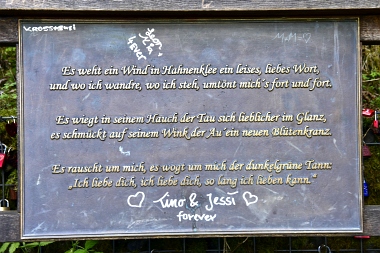 Es weht ein Wind in Hahnenklee ein leises, liebes Wort,
und wo ich wandre, wo ich steh, umtönt mich's fort und fort.
Es wiegt in seinem Hauch der Tau sich lieblicher im Glanz,
es schmückt auf seinem Wink der Au ein neuen Blütenkranz.
Es rauscht um mich, es wogt um mich der dunkelgrüne Tann:
„Ich liebe dich, ich liebe dich, so lang ich lieben kann."
Tino & Jessi
forever